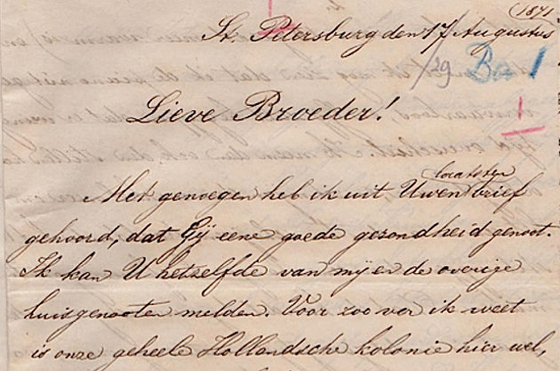 (1871)
St. Petersburg den 17 Augustus
/29 Ba 1
1
Lieve Broeder!
laatsten
Met genoegen heb ik uit Uwen brief
gehoord, dat Gij eene goede gezondheid genoot.
Ik kan U hetzelfde van mij en de overige
huisgenooten melden. Voor zoo ver ik weet
is onze geheele Hollandsche kolonie hier wel,